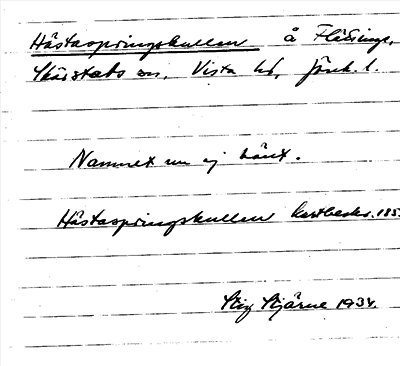 Hästaspringskullen å Flättinge,
Skärstads sn, Vista hd, Jönk. l.
Namnet nu ej känt.
Hästaspringskullen kartbeskr. 185
Stig Stjärne 1934.